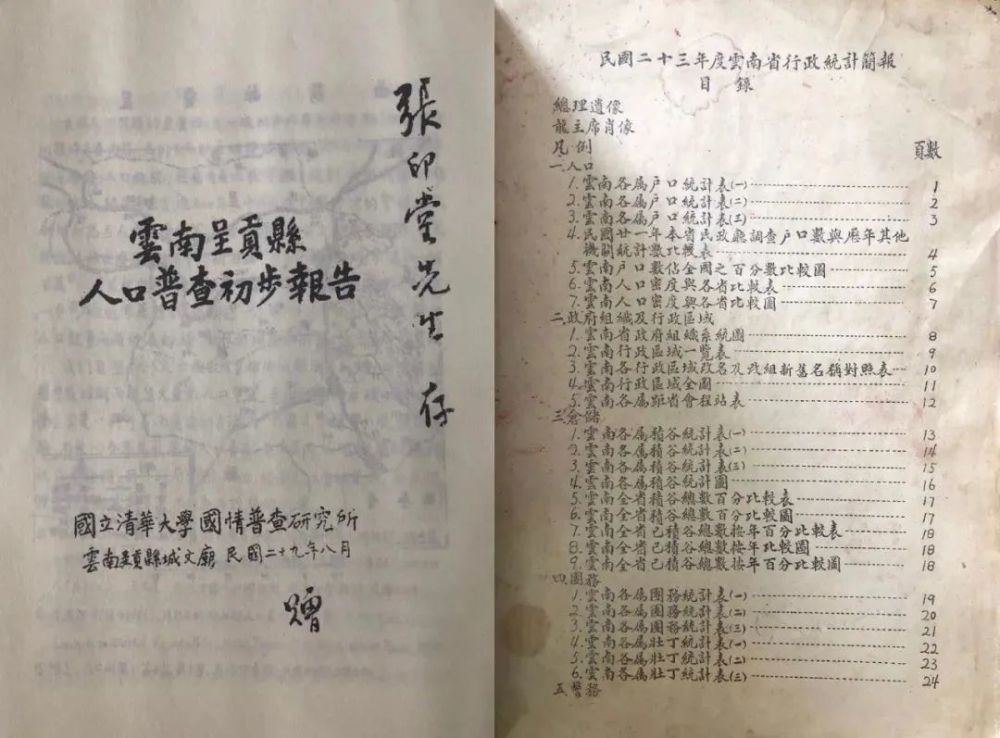 張印堂先生 存
雲南呈貢縣
人口普查初步報告
國立清華大學國情普查研究所
雲南呈貢縣城文廟 民國二十九年八月
贈
民國二十三年度雲南省行政統計簡報
目 錄
總理遺像
龍主席肖像
凡例
頁數
一.人口
1.雲南各属户口統計表(一) 1
2.雲南各属户口統計表(二) 2
3.雲南各属户口統計表(三) 3
4.民國廿一年本省民政廳調查户口數與歷年其他
機關統計數比較表 4
5.雲南户口數佔全國之百分數比較圖 5
6.雲南人口密度與各省比較表 6
7.雲南人口密度與各省比較圖 7
二.政府組織及行政區域
1.雲南省政府組織系統圖 8
2.雲南行政區域一覽表 9
3.雲南各行政區域改名及改組新舊名稱對照表 10
4.雲南行政區域全圖 11
5.雲南各属距省會程站表 12
三.倉儲
1.雲南各属積谷統計表(一) 13
2.雲南各属積谷統計表(二) 14
3.雲南各属積谷統計表(三) 15
4.雲南各属積谷統計圖 16
5.雲南全省積谷總數百分比較表 17
6.雲南全省積谷總數百分比較圖 17
7.雲南全省已積谷總數按年百分比較表 18
8.雲南全省已積谷總數按年比較圖 18
9.雲南全省已積谷總數按年百分比較圖 18
四.團務
1.雲南各属團務統計表(一) 19
2.雲南各属團務統計表(二) 20
3.雲南各属團務統計表(三) 21
4.雲南各属壯丁統計表(一) 22
5.雲南各属壯丁統計表(二) 23
6.雲南各属壯丁統計表(三) 24
五.警務